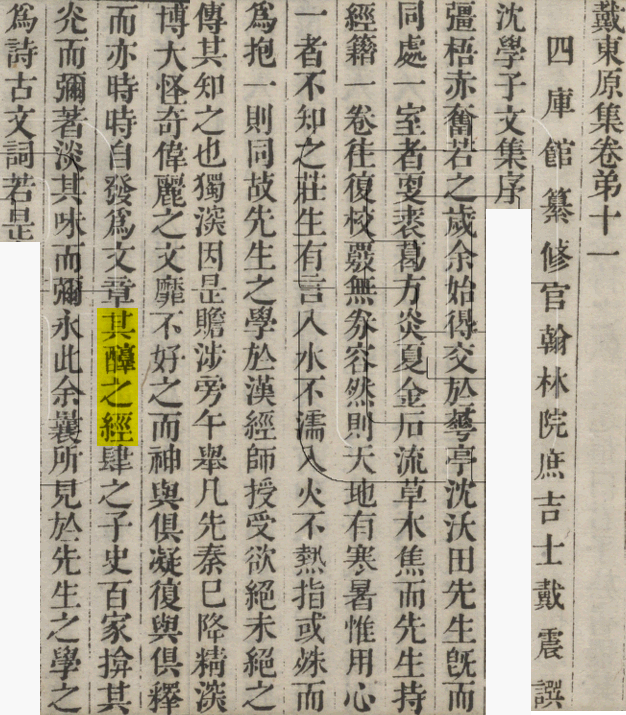 戴東原集卷弟十一
四庫館纂修官翰林院庶吉士戴震譔
沈學子文集序
彊梧赤奮若之歲余始得交於華亭沈沃田先生旣而
同處一室者叓裘葛方炎夏金石流草木焦而先生持
經籍一卷往復校覈無券容然則天地有寒暑惟用心
一者不知之莊生有言入水不濡入火不熱指或殊而
爲抱一則同故先生之學於漢經師授受欲絕未絕之
傳其知之也獨深因昰贍涉旁午舉凡先秦已降精深
博大怪奇偉麗之文靡不好之而神與俱凝復與俱釋
而亦時時自發爲文章其醇之經肆之子史百家揜其
光而彌著淡其味而彌永此余曩所見於先生之學之
爲詩古文詞若昰